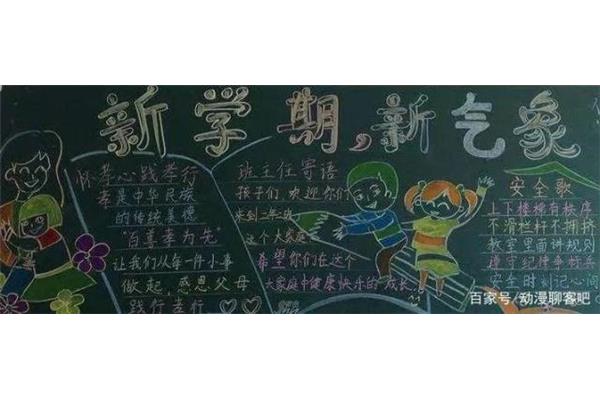 新学期,新气象
怀孝心践孝行
孝是中华民族
的传统美德
"百尊孝为先"
让我们从每一件小事
做起,感恩父母
践行孝行
班主任寄语
孩子们,欢迎你们
来到二年2班
这个大家庭
希望你们在这个
大家庭中健康快乐的成长
安全歌
上下楼梯有秩序
不滑栏杆不拥挤
教室里面讲规则
遵守纪律争标兵
安全时刻记心间
百家号/动漫聊客吧